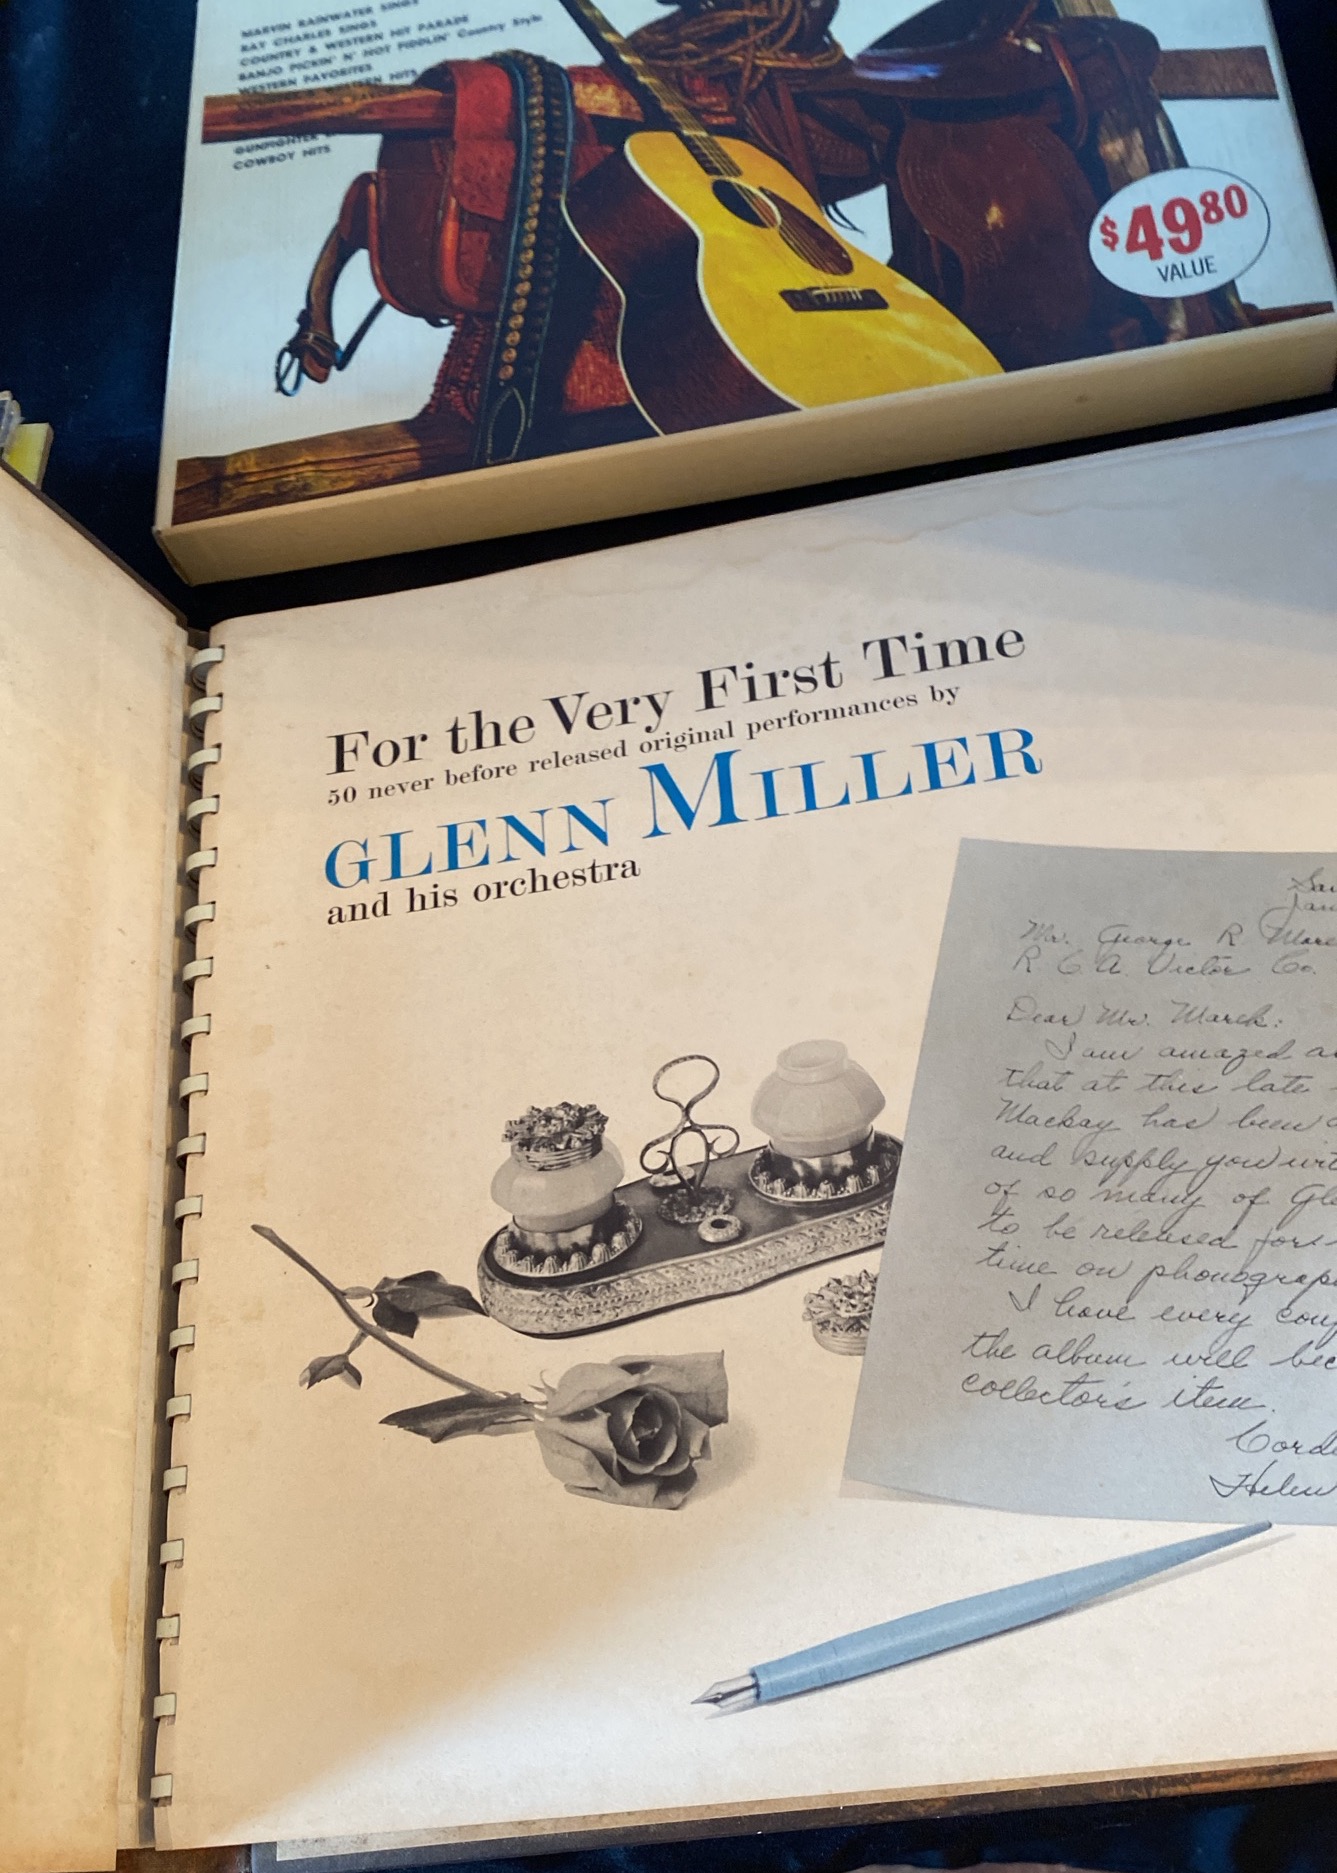 MARVIN RAINWATER SINGS
RAY CHARLES SINGS
COUNTRY & WESTERN HIT PARADE
BANJO PICKIN' N' HOT FIDDLIN' Country Style
WESTERN FAVORITES
WESTERN HITS
GUNFIGHTER
COWBOY HITS
$49.80
VALUE
For the Very First Time
50 never before released original performances by
GLENN MILLER
and his orchestra
Mr. George R.
R C A Victor Co.
Dear Mr. Marek:
I am amazed
that at this late
Mackay has been
and supply you
of so many of
to be released
time on
I have every
the album will
collector's item.
Helen